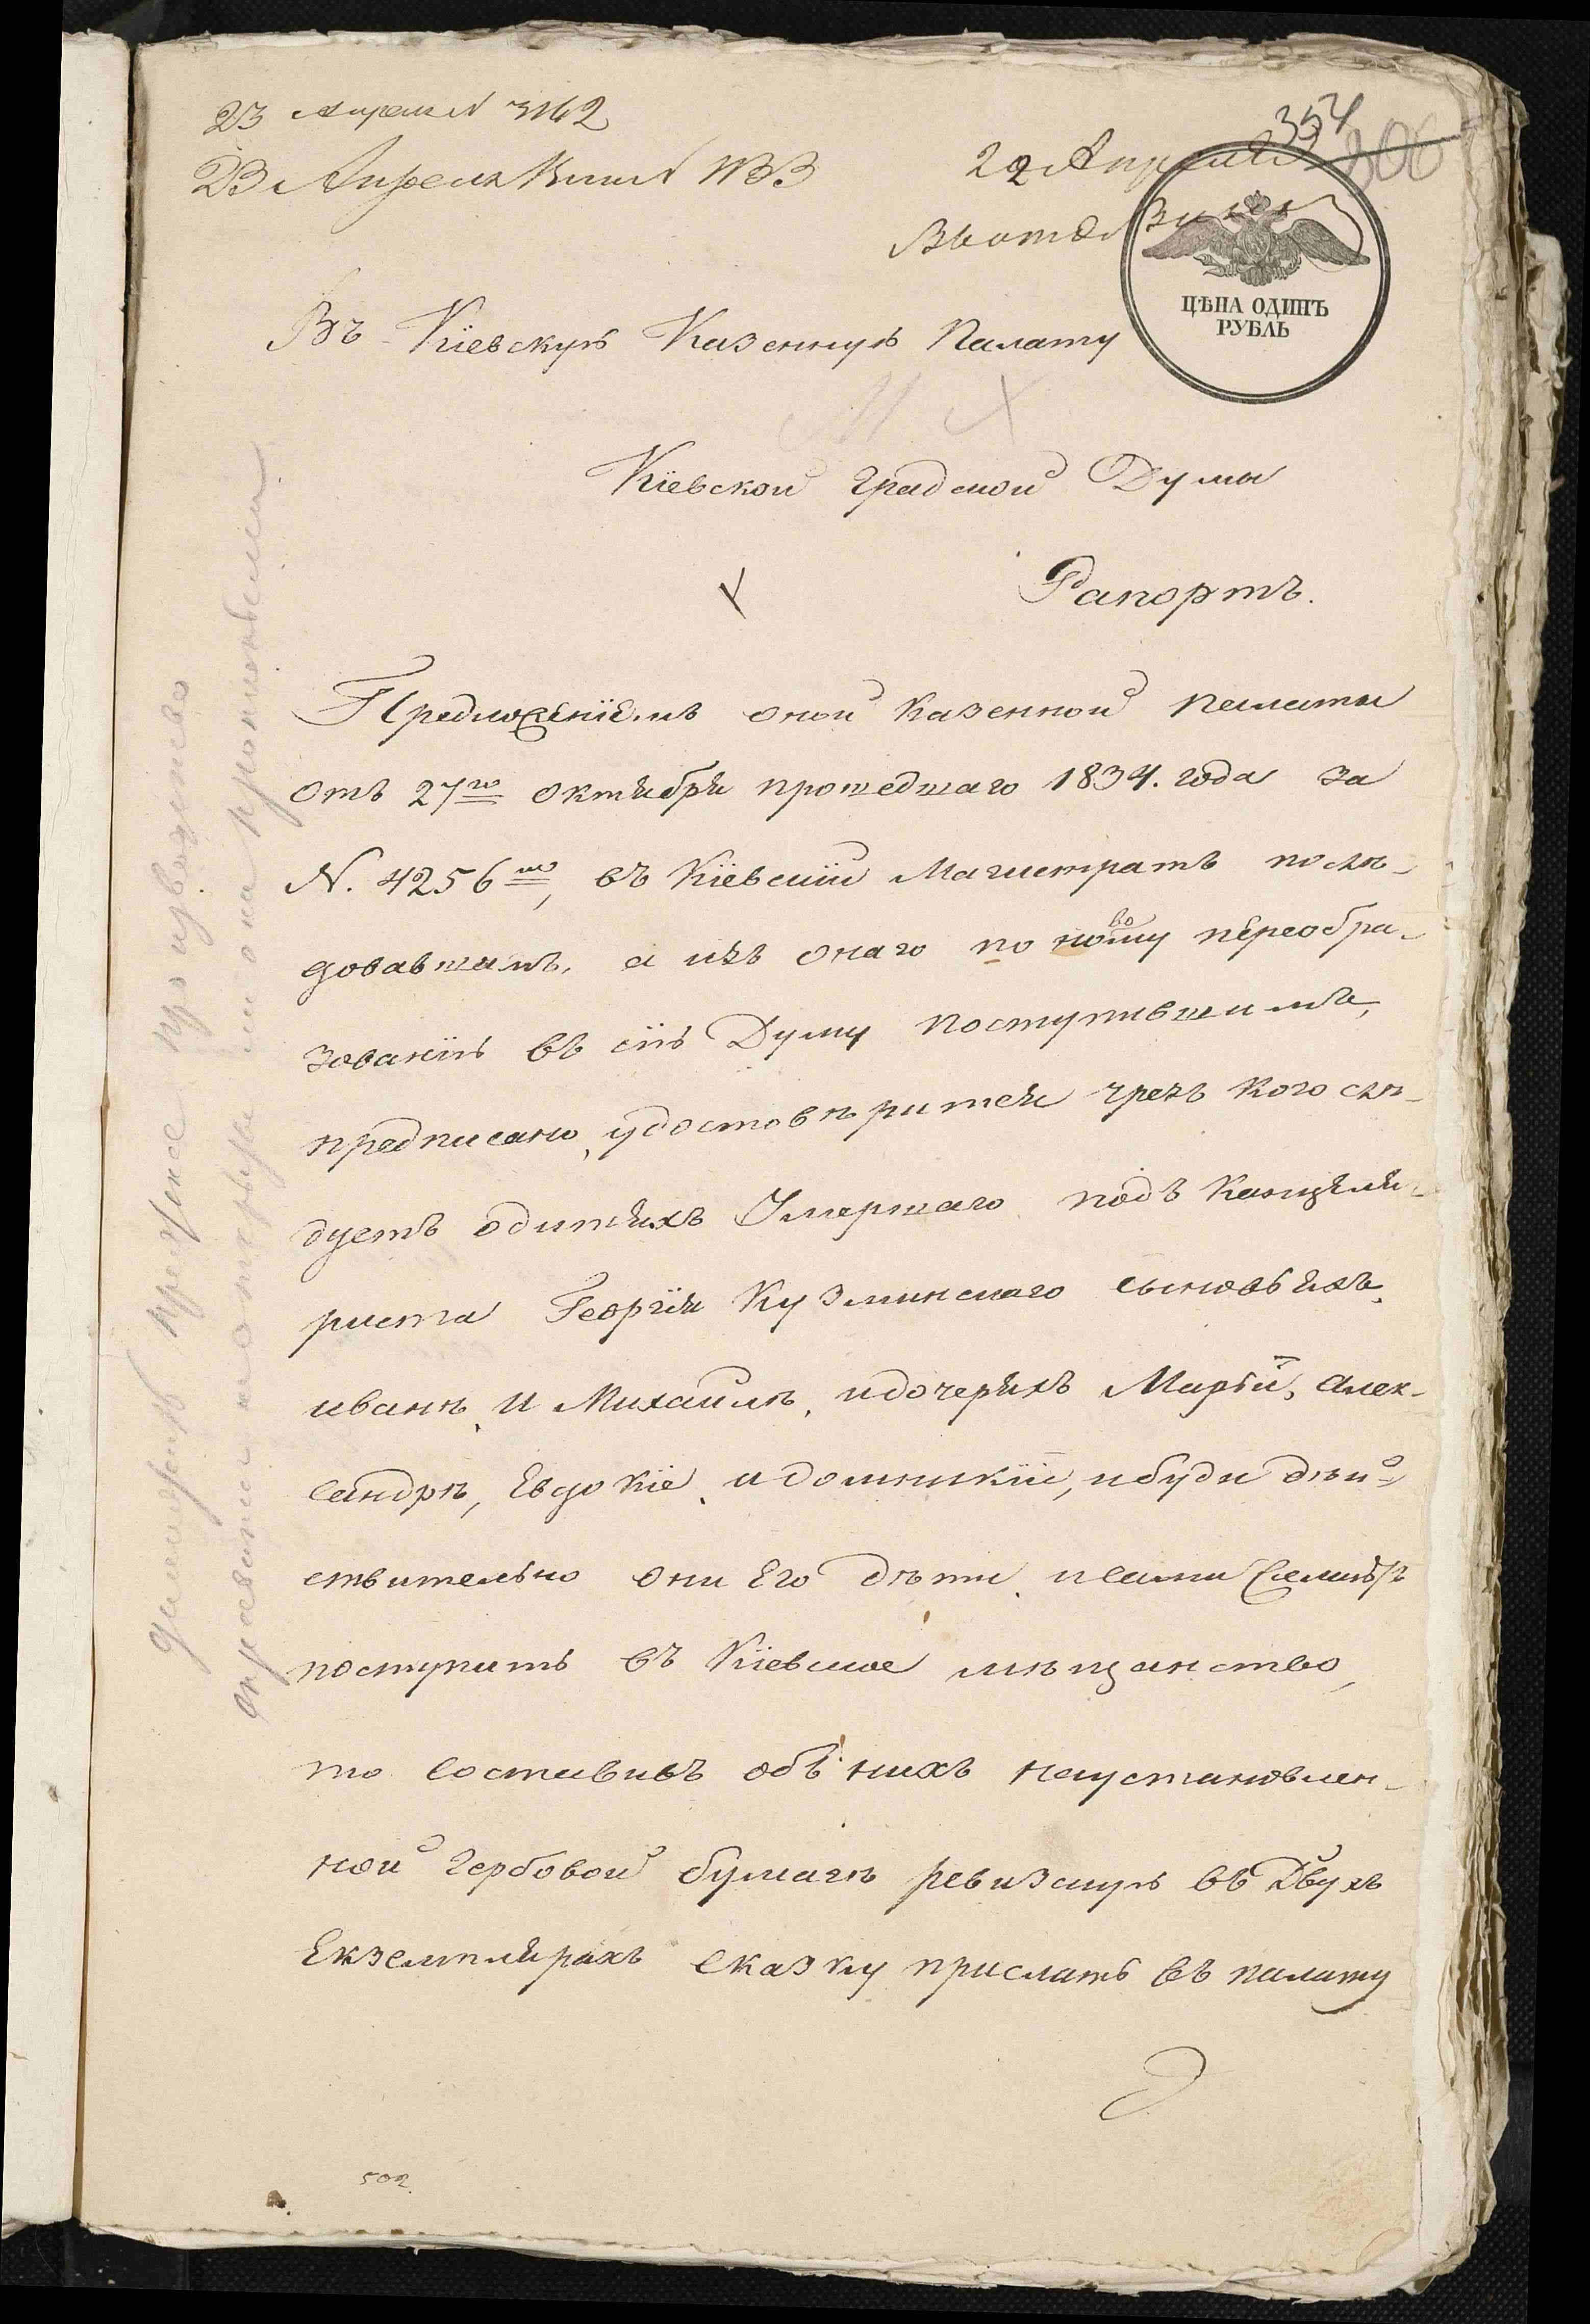 23 Апреля N 3162
23 Апреля
22 Апреля
354
ЦѢНА ОДИНЪ
РУБЛЬ
Въ Кіевскую Казенную Палату
Кіевской градской Думы
Рапортъ.
Предложеніемъ оной Казенной палаты
отъ 27го октября прошедшаго 1834. года за
N. 4256мъ, въ Кіевскій Магистратъ послѣ-
довавшемъ, а изъ онаго по новому переобра-
зованію въ сію Думу поступившимъ,
предписано, удостовѣрится чрезъ кого слѣ-
дуетъ одитяхъ Умершаго подъ Канцеля-
риста Георгія Кузминскаго сыновьяхъ,
иванѣ, И Михаилѣ, идочеряхъ Маріи, алек-
сандрѣ, Евдокіе, идомникіи, ибуди дѣй-
ствительно они Его дѣти,
поступить въ Кіевское мѣщанство,
то составивъ объ нихъ наустановлен-
ной гербовой бумагѣ ревизскую въ Двухъ
Екземплярахъ сказку прислать въ палату
502